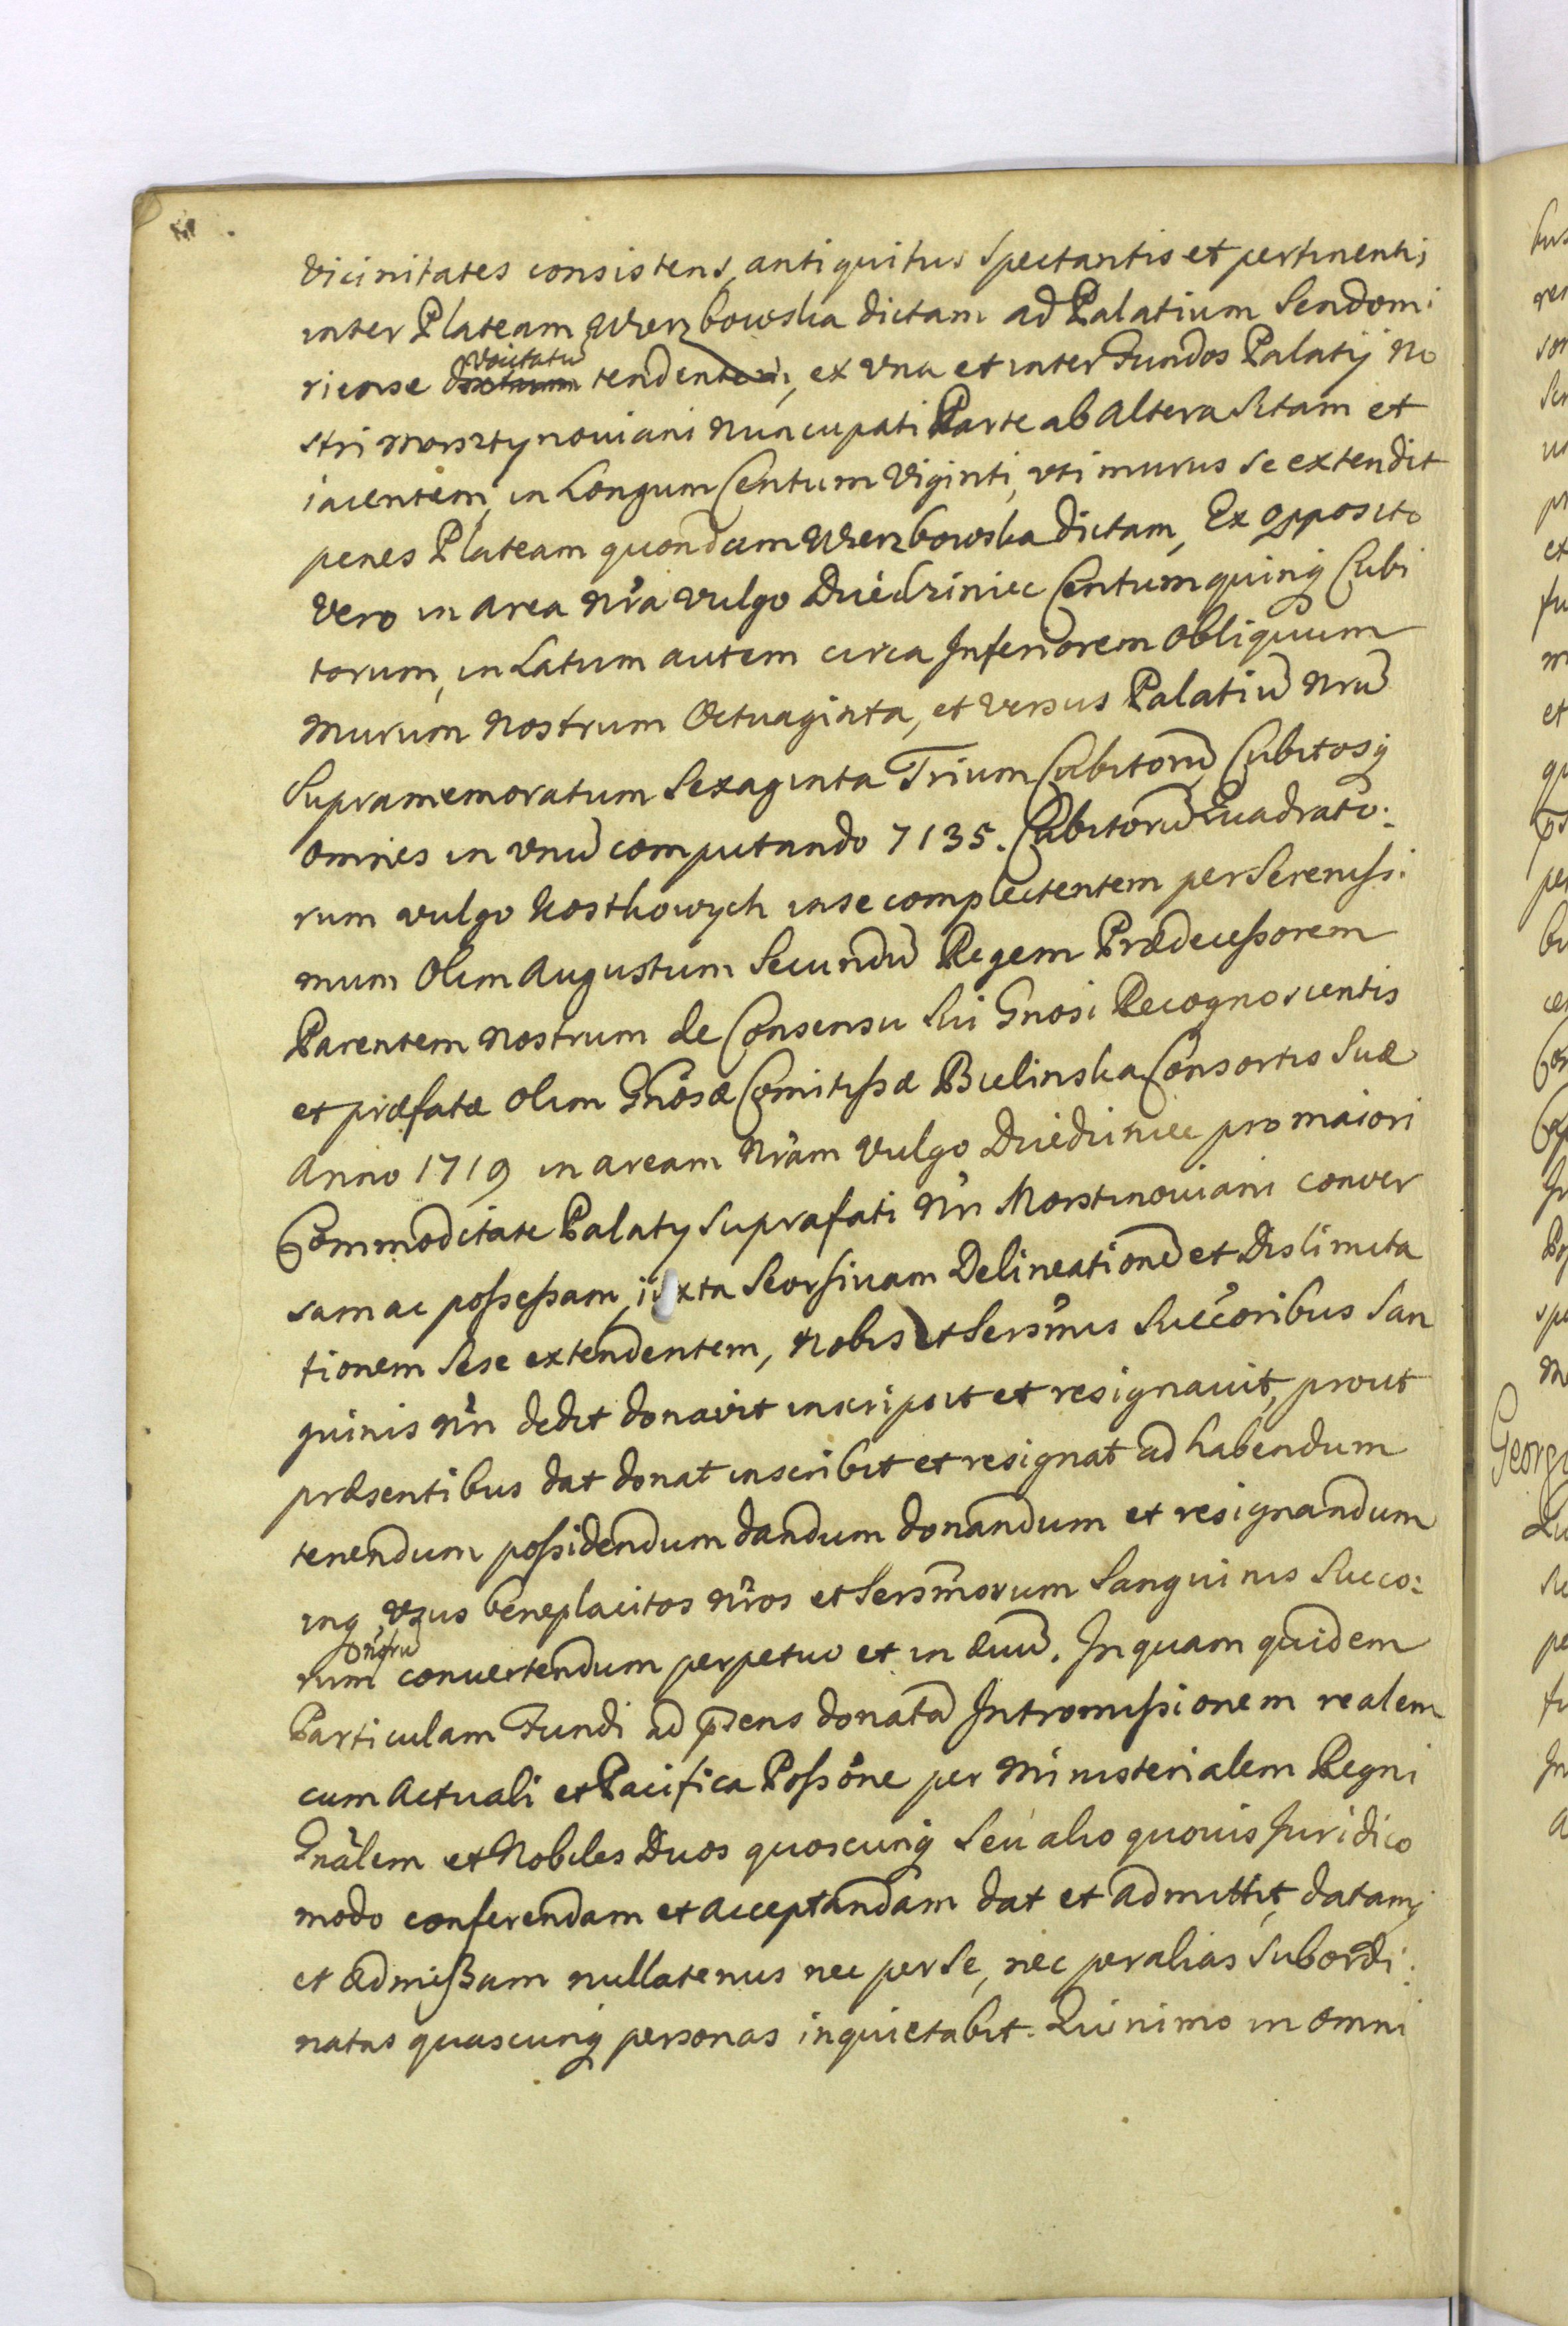 vicinitates consistens, antiquitus spectantis et pertinentis
inter Plateam Wierzbowska dictam ad Palatium Sendomi:
riense vocitatũ tendentem, ex una et inter Fundos Palatij No
stri Morsztynoviani nuncupati Parte ab altera sitam et
iacentem, in Longum Centum Viginti, uti murus se extendit
penes Plateam quondam Wierzbowska dictam, Ex opposito
vero in area nra vulgo Dziedziniec Centum quinq Cubi
torum, in Latum autem circa Inferiorem obliquum
murum nostrum Octuaginta, et versus Palatiũ nrũ
supramemoratum Sexaginta Trium Cubitorũ, Cubitosq
omnes in unũ computando 7135. Cubitorũ Quadrato:
rum vulgo Kostkowych in se complectentem per Serenissi:
mum olim Augustum Secundũ Regem Prædecessorem
Parentem nostrum de Consensu sui Gnosi Recognoscentis
et præfatæ olim Gnosæ Comitissæ Bielinska Consortis suæ
Anno 1719 in aream nram vulgo Dziedziniec pro maiori
Commoditate Palaty suprafati nri Morstinoviani conver
sam ac possessam, iuxta seorsivam Delineationẽ et Dislimita
tionem sese extendentem, nobis et Sersmis Succoribus San
guinis nri dedit donavit inscripsit et resignavit, prout
præsentibus dat donat inscribit et resignat ad habendum
tenendum possidendum dandum donandum et resignandum
inq usus beneplacitos nros et Sersmorum Sanguinis Succo:
rum nrorũ convertendum perpetuo et in ævũ. In quam quidem
Particulam Fundi ad psens donatã Intromissionem realem
cum Actuali et Pacifica Possone per Ministerialem Regni
Gnalem et Nobiles Duos quoscunq seu alio quovis Juridico
modo conferendam et acceptandam dat et admittit, datamq
et admissam nullatenus nec per se, nec per alias subordi:
natas quascunq personas inquietabit. Quinimo in omni